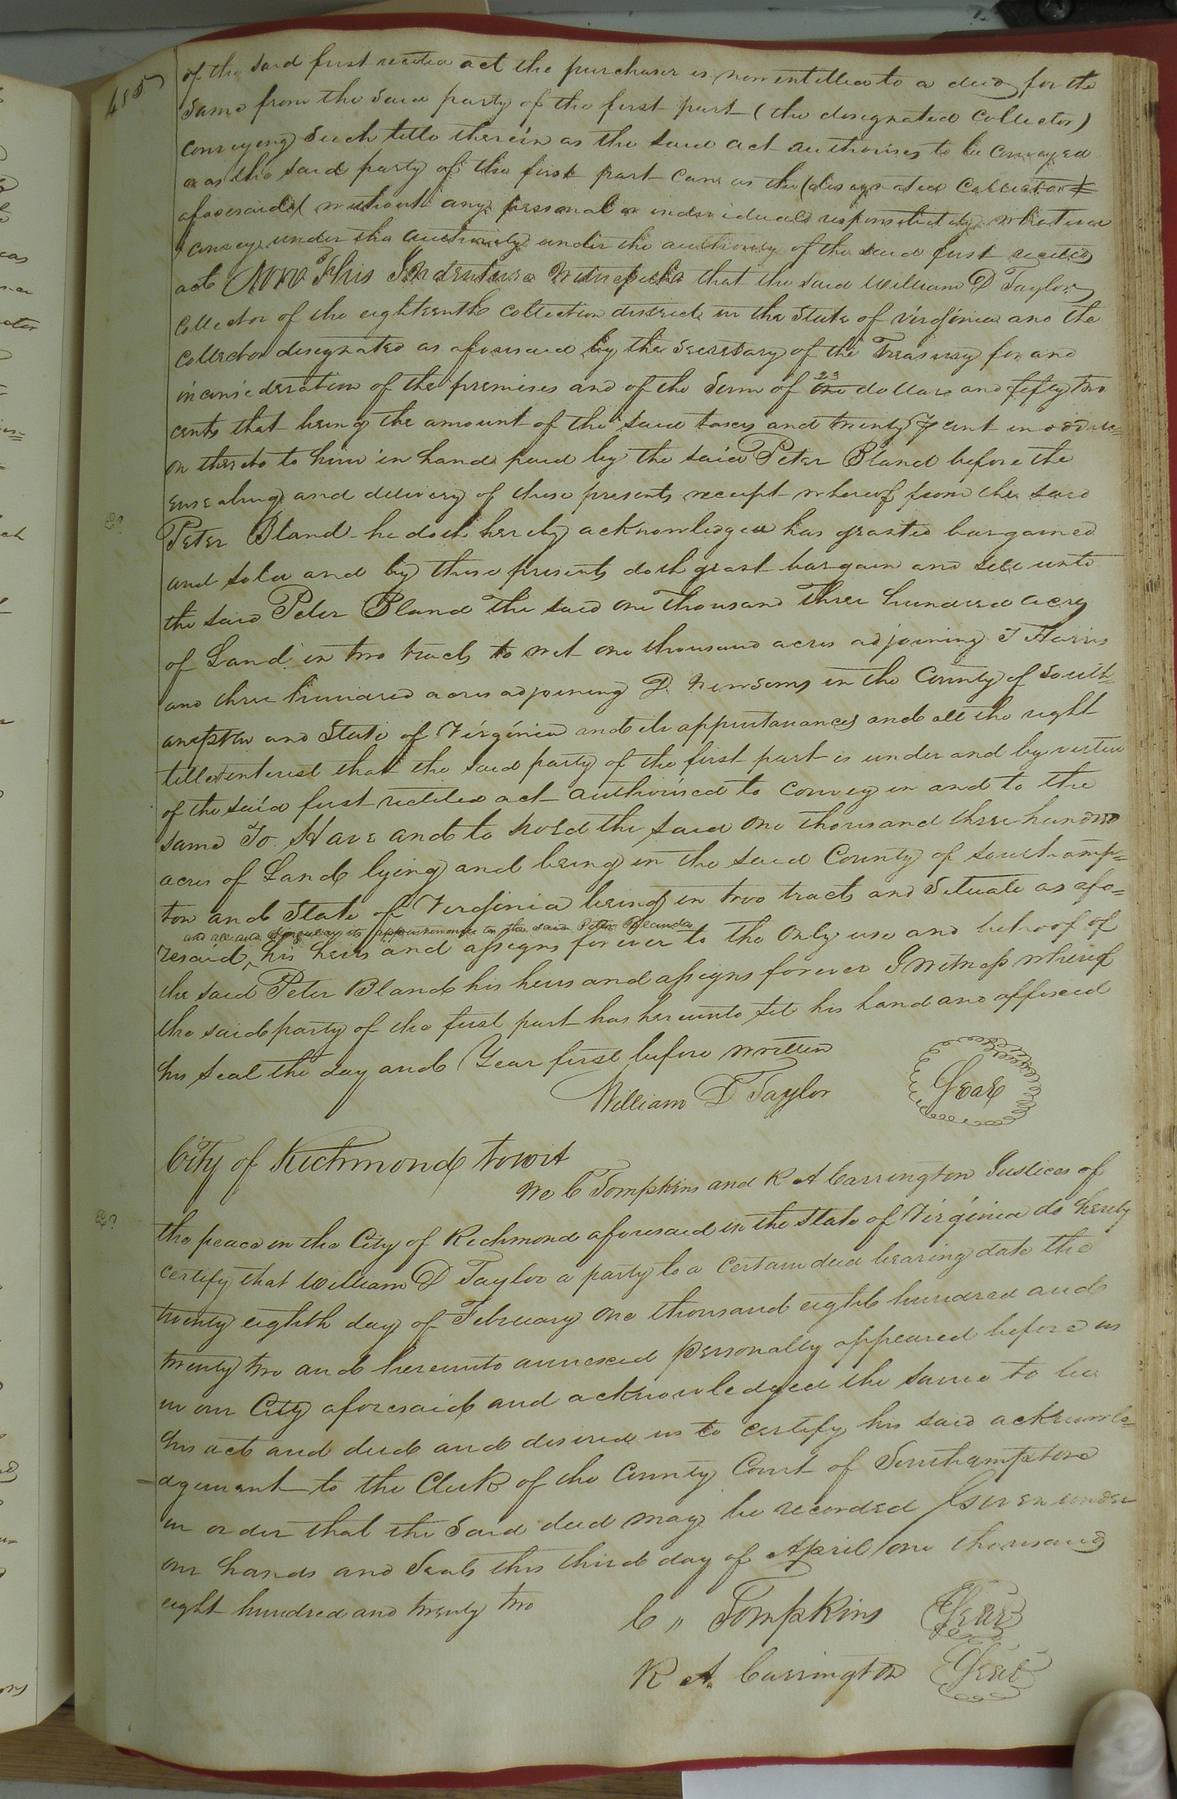 485
of the said first recited act the purchaser is now intitled to a deed for the
same from the said party of the first part (the designated Collector)
conveying such title therein as the said act authorises to be conveyed
or as the said party of the first part can as the (designated Collector
aforesaid) without any personal or individual responsibility whatever
convey under the authority under the authority of the said first recited
act Now This Indenture Witnesseth that the said William D Taylor
Collector of the eighteenth collection district in the State of Virginia and the
Collector designated as aforesaid by the Secretary of the Treasury for and
in consideration of the premises and of the Sum of 23 dollars and fifty two
cents that being the amount of the said taxes and twenty Pr cent in addit=
on thereto to him in hand paid by the said Peter Bland before the
ensealing and delivery of these presents receipt whereof from the said
Peter Bland he doth hereby acknowledged has granted bargained
and sold and by these presents doth grant bargain and sell unto
the said Peter Bland The said one thousand Three hundred acres
of Land in two tracts to wit one thousand acres adjoining T Harris
and three hundred acres adjoining D. Newsoms in the County of South=
ampton and State of Virginia and its appurtanances and all the right
title interest that the said party of the first part is under and by virtue
of the said first recited act authorised to convey in and to the
same To Have and to hold the said One thousand three hundred
acres of Land lying and being in the said County of Southamp=
ton and State of Virginia being in two tracts and Situate as afo=
and all and singular its appurtenances to the said Peter Bland
resaid his heirs and assigns forever to the Only use and behoof of
the said Peter Bland his heirs and assigns forever In witness whereof
the said party of the first part has hereunto set his hand and affixed
his Seal the day and Year first before written
William D Taylor Seal
City of Richmond towit
We C Tompkins and R A Carrington Justices of
the peace in the City of Richmond aforesaid in the State of Virginia do hereby
certify that William D Taylor a party to a certain deed bearing date the
twenty eighth day of February one thousand eight hundred and
twenty two and hereunto annexed personally appeared before us
in our City aforesaid and acknowledged the same to be
his act and deed and desired us to certify his said acknowle=
dgement to the Clerk of the County Court of Southampton
in order that the said deed may be recorded Given under
our hands and Seals this third day of April one thousand
eight hundred and twenty two
C " Tompkins Seal
R A. Carrington Seal